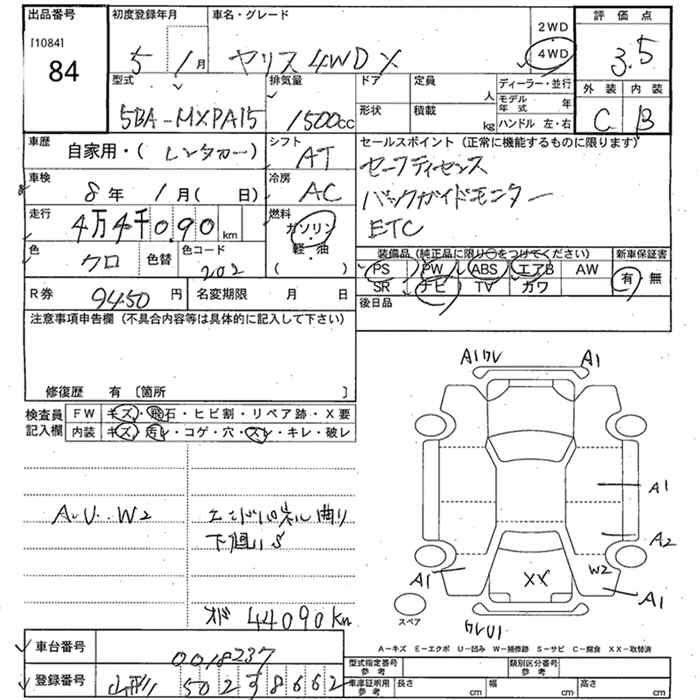 出品番号
[1084]
84
初度登録年月
5 1月
車名・グレード
ヤリス 4WD X
2WD
4WD
評価点
3.5
外装 内装
C B
型式
5BA-MXPA15
排気量
1500cc
ドア
定員
人
形状
積載
kg
ディーラー・並行
モデル年式 年
ハンドル 左・右
車歴
自家用・(レンタカー)
シフト
AT
セールスポイント(正常に機能するものに限ります)
セーフティセンス
バックガイドモニター
ETC
車検
8年 1月( 日)
冷房
AC
走行
4万4千0.90km
燃料
ガソリン・
軽・油
( )
色
クロ
色替
色コード
202
装備品(純正品に限り○をつけてください)
新車保証書
PS PW ABS エアB AW
SR ナビ TV カワ
有・無
R券
9450円
名変期限 月 日
後日品
注意事項申告欄(不具合内容等は具体的に記入して下さい)
修復歴 有〔箇所 〕
検査員
記入欄
FW キズ・飛石・ヒビ割・リペア跡・X要
内装 キズ・汚レ・コゲ・穴・スレ・キレ・破レ
A.U..W2
エンドパネル曲り
下廻りS
オド 44090km
A1 ワレ
A1
A1
A2
W2
A1
A1
XX
ワレU1
スペア
A-キズ E-エクボ U-凹み W-補修跡 S-サビ C-腐食 XX-取替済
車台番号
0018237
登録番号
山形 502 す 8662
型式指定番号
参考
類別区分番号
参考
車庫証明用
参考
長さ cm
幅 cm
高さ cm